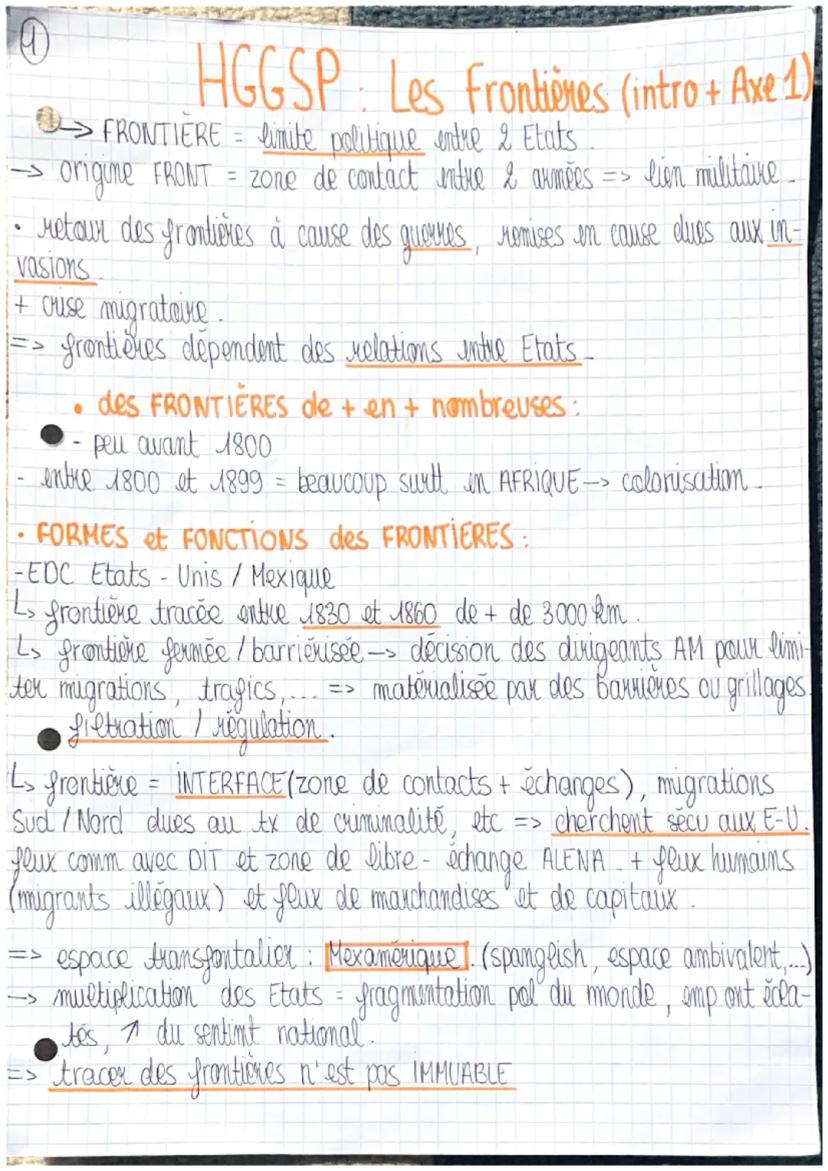 1
HGGSP : Les Frontières (intro + Axe 1)
-> FRONTIÈRE = limite politique entre 2 Etats.
-> origine FRONT = zone de contact entre 2 armées => lien militaire.
• retour des frontières à cause des guerres, remises en cause dues aux in-
vasions.
+ crise migratoire.
=> frontières dépendent des relations entre Etats.
• des FRONTIÈRES de + en + nombreuses :
- peu avant 1800
- entre 1800 et 1899 = beaucoup surtt en AFRIQUE -> colonisation.
• FORMES et FONCTIONS des FRONTIÈRES :
-EDC Etats - Unis / Mexique
↳ frontière tracée entre 1830 et 1860 de + de 3000 km.
↳ frontière fermée / barriérisée -> décision des dirigeants AM pour limi-
ter migrations, trafics, ... => matérialisée par des barrières ou grillages.
filtration / régulation.
↳ frontière = INTERFACE (zone de contacts + échanges), migrations
Sud / Nord dues au tx de criminalité, etc => cherchent sécu aux E-U.
flux comm avec DIT et zone de libre - échange ALENA + flux humains
(migrants illégaux) et flux de marchandises et de capitaux.
=> espace transfontalier : Mexamérique. (spanglish, espace ambivalent,...)
-> multiplication des Etats = fragmentation pol du monde, emp ont écla-
tés, ↗ du sentimt national.
=> tracer des frontières n'est pas IMMUABLE